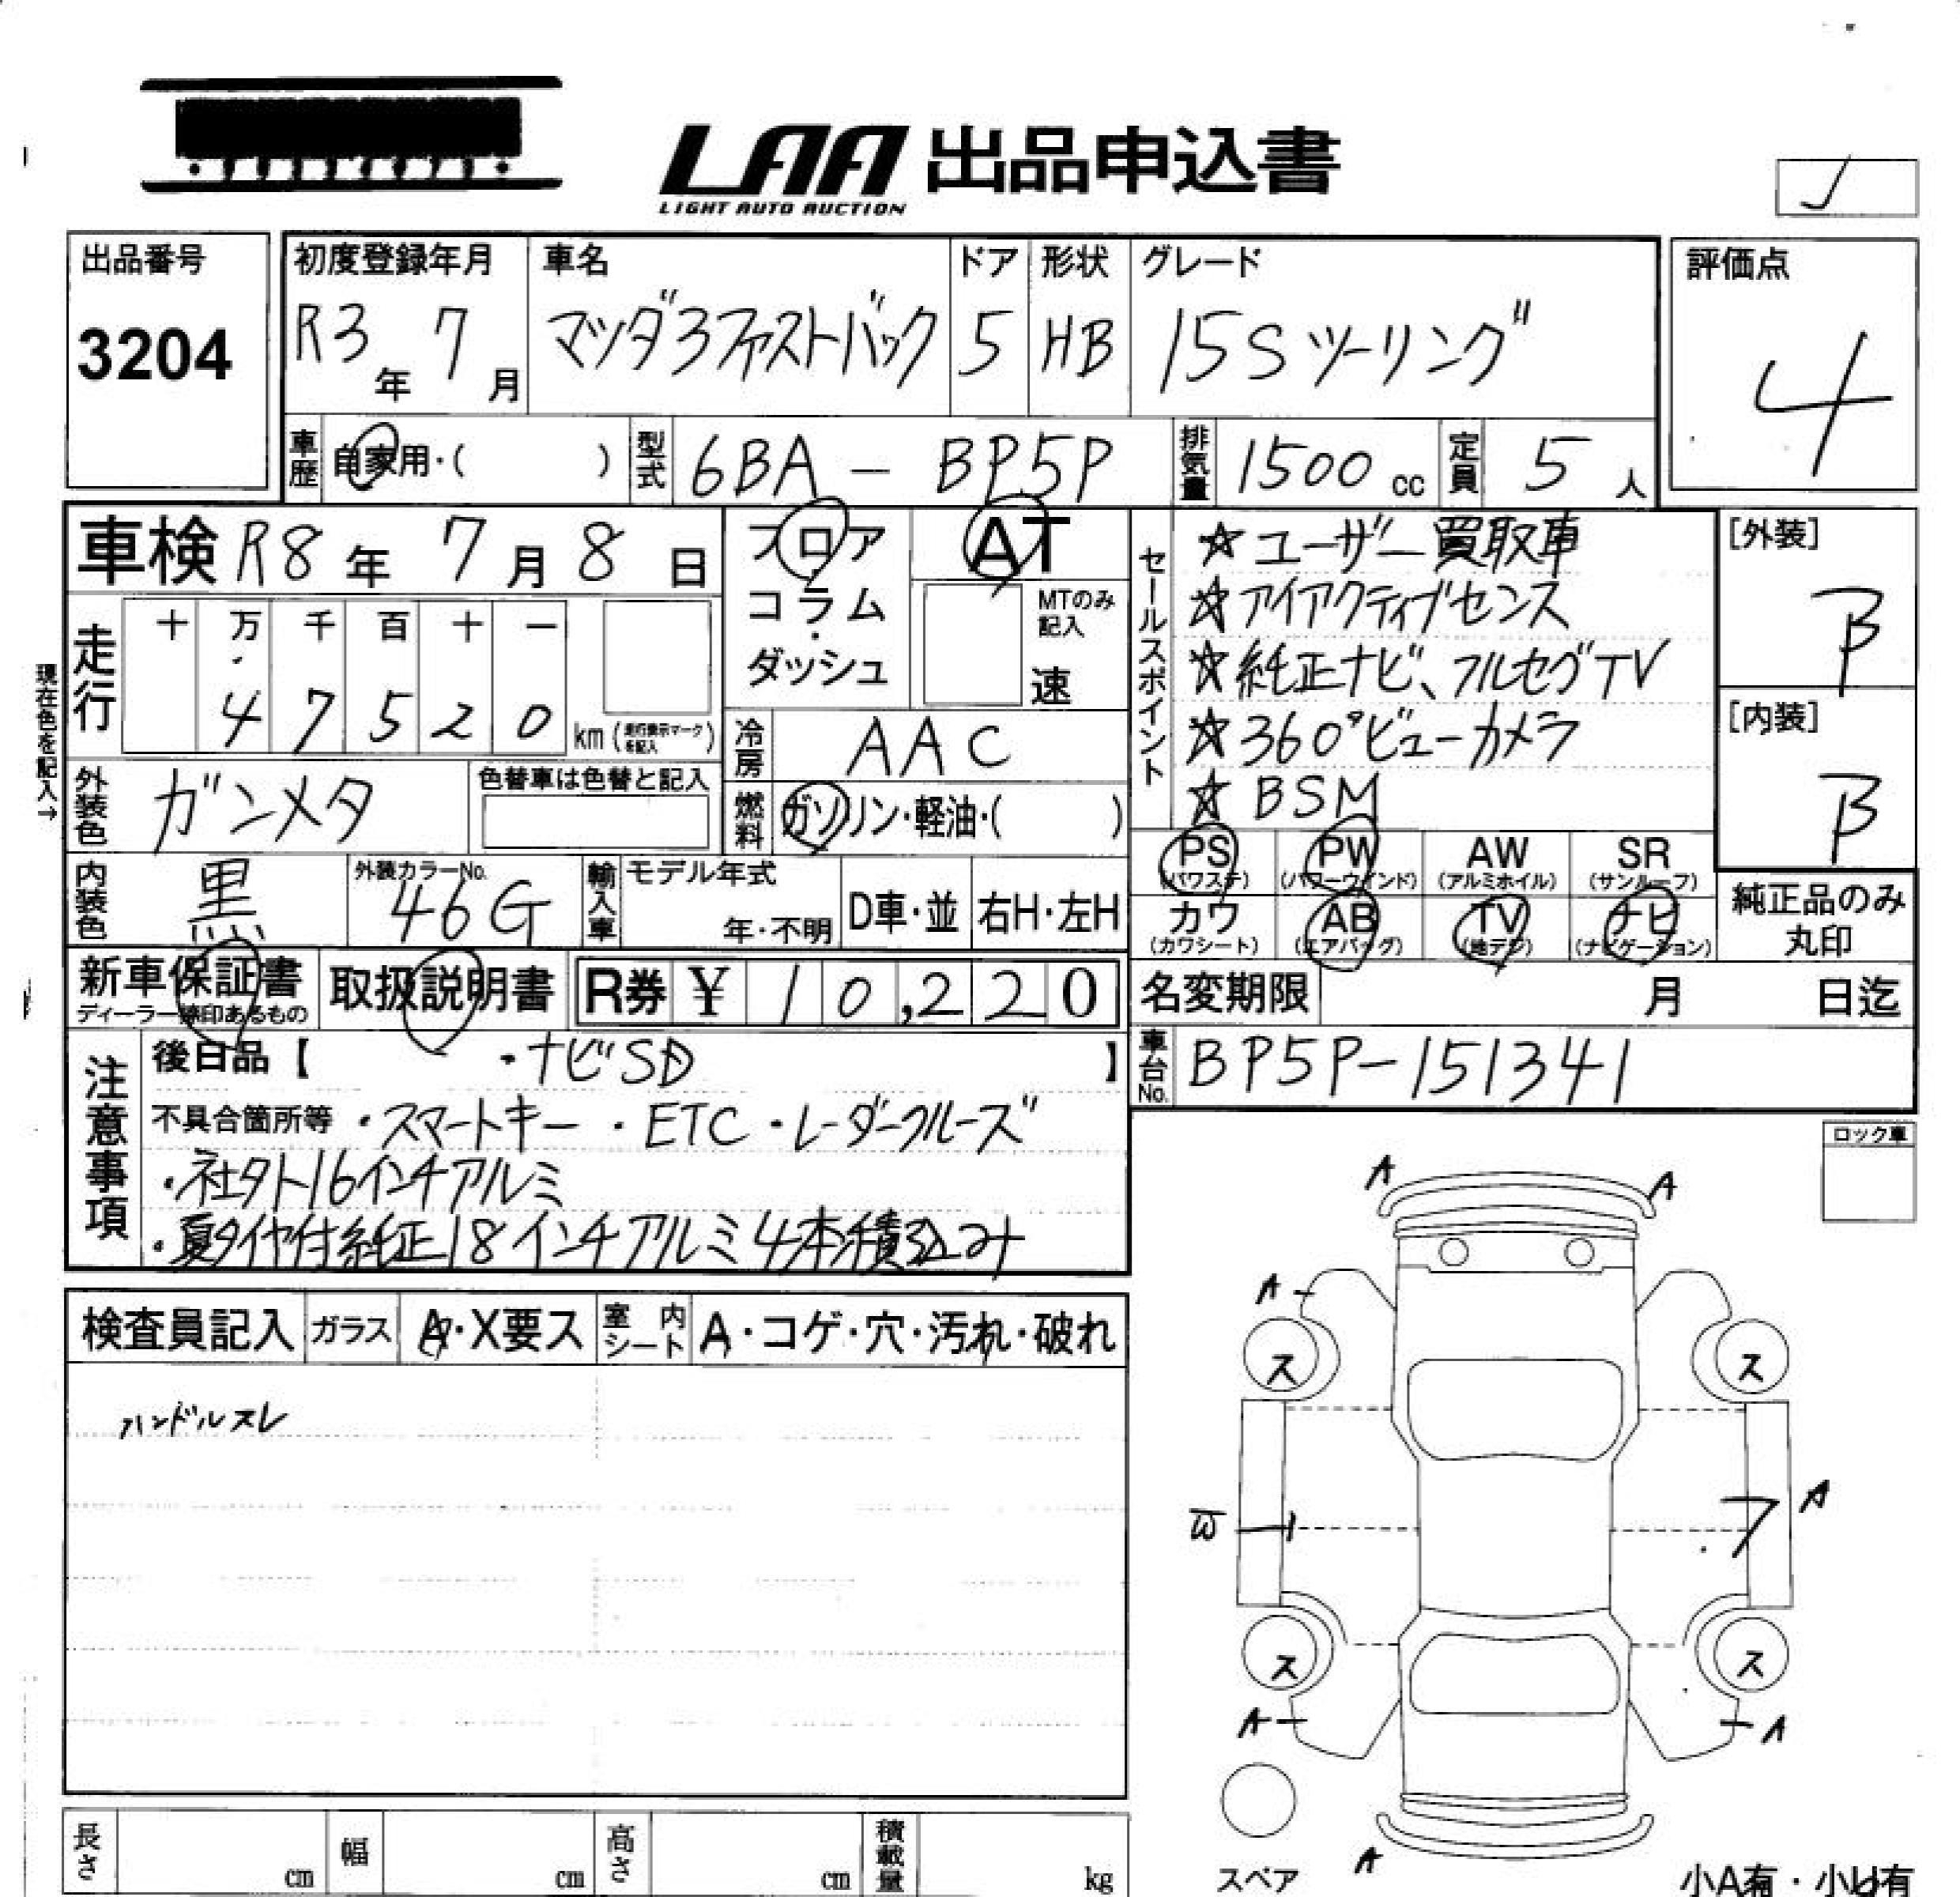 LAA 出品申込書
LIGHT AUTO AUCTION
出品番号 初度登録年月 車名 ドア 形状 グレード 評価点
3204 R3年 7月 マツダ3ファストバック 5 HB 15Sツーリング 4
車歴 自家用・( ) 型式 6BA - BP5P 排気量 1500cc 定員 5人
車検 R8年 7月 8日 フロア AT
コラム・ダッシュ MTのみ記入 速
セールスポイント
☆ユーザー買取車
☆アイアクティブセンス
☆純正ナビ、フルセグTV
☆360°ビューカメラ
☆BSM
[外装] B
[内装] B
現在色を記入→
走行 十 万 千 百 十 一
4 7 5 2 0 km (走行表示マークを記入)
冷房 AAC
外装色 ガンメタ 色替車は色替と記入 燃料 ガソリン・軽油・( )
内装色 黒 外装カラーNo. 46G 輸入車 モデル年式 年・不明 D車・並 右H・左H
PS (パワステ) PW (パワーウインド) AW (アルミホイル) SR (サンルーフ)
カワ (カワシート) AB (エアバッグ) TV (地デジ) ナビ (ナビゲーション) 純正品のみ丸印
新車保証書 ディーラー捺印あるもの 取扱説明書 R券 ¥ 10,220 名変期限 月 日迄
車台No. BP5P-151341
注意事項
後日品【 ・ナビSD 】
不具合箇所等 ・スマートキー ・ETC ・レーダークルーズ
・社外16インチアルミ
・夏タイヤ付純正18インチアルミ4本積込み
ロック車
検査員記入 ガラス A・X要ス 室内シート A・コゲ・穴・汚れ・破れ
ハンドルスレ
A A
A
ス ス
W A
ス ス
A A
A
スペア
小A有・小U有
長さ cm 幅 cm 高さ cm 積載量 kg